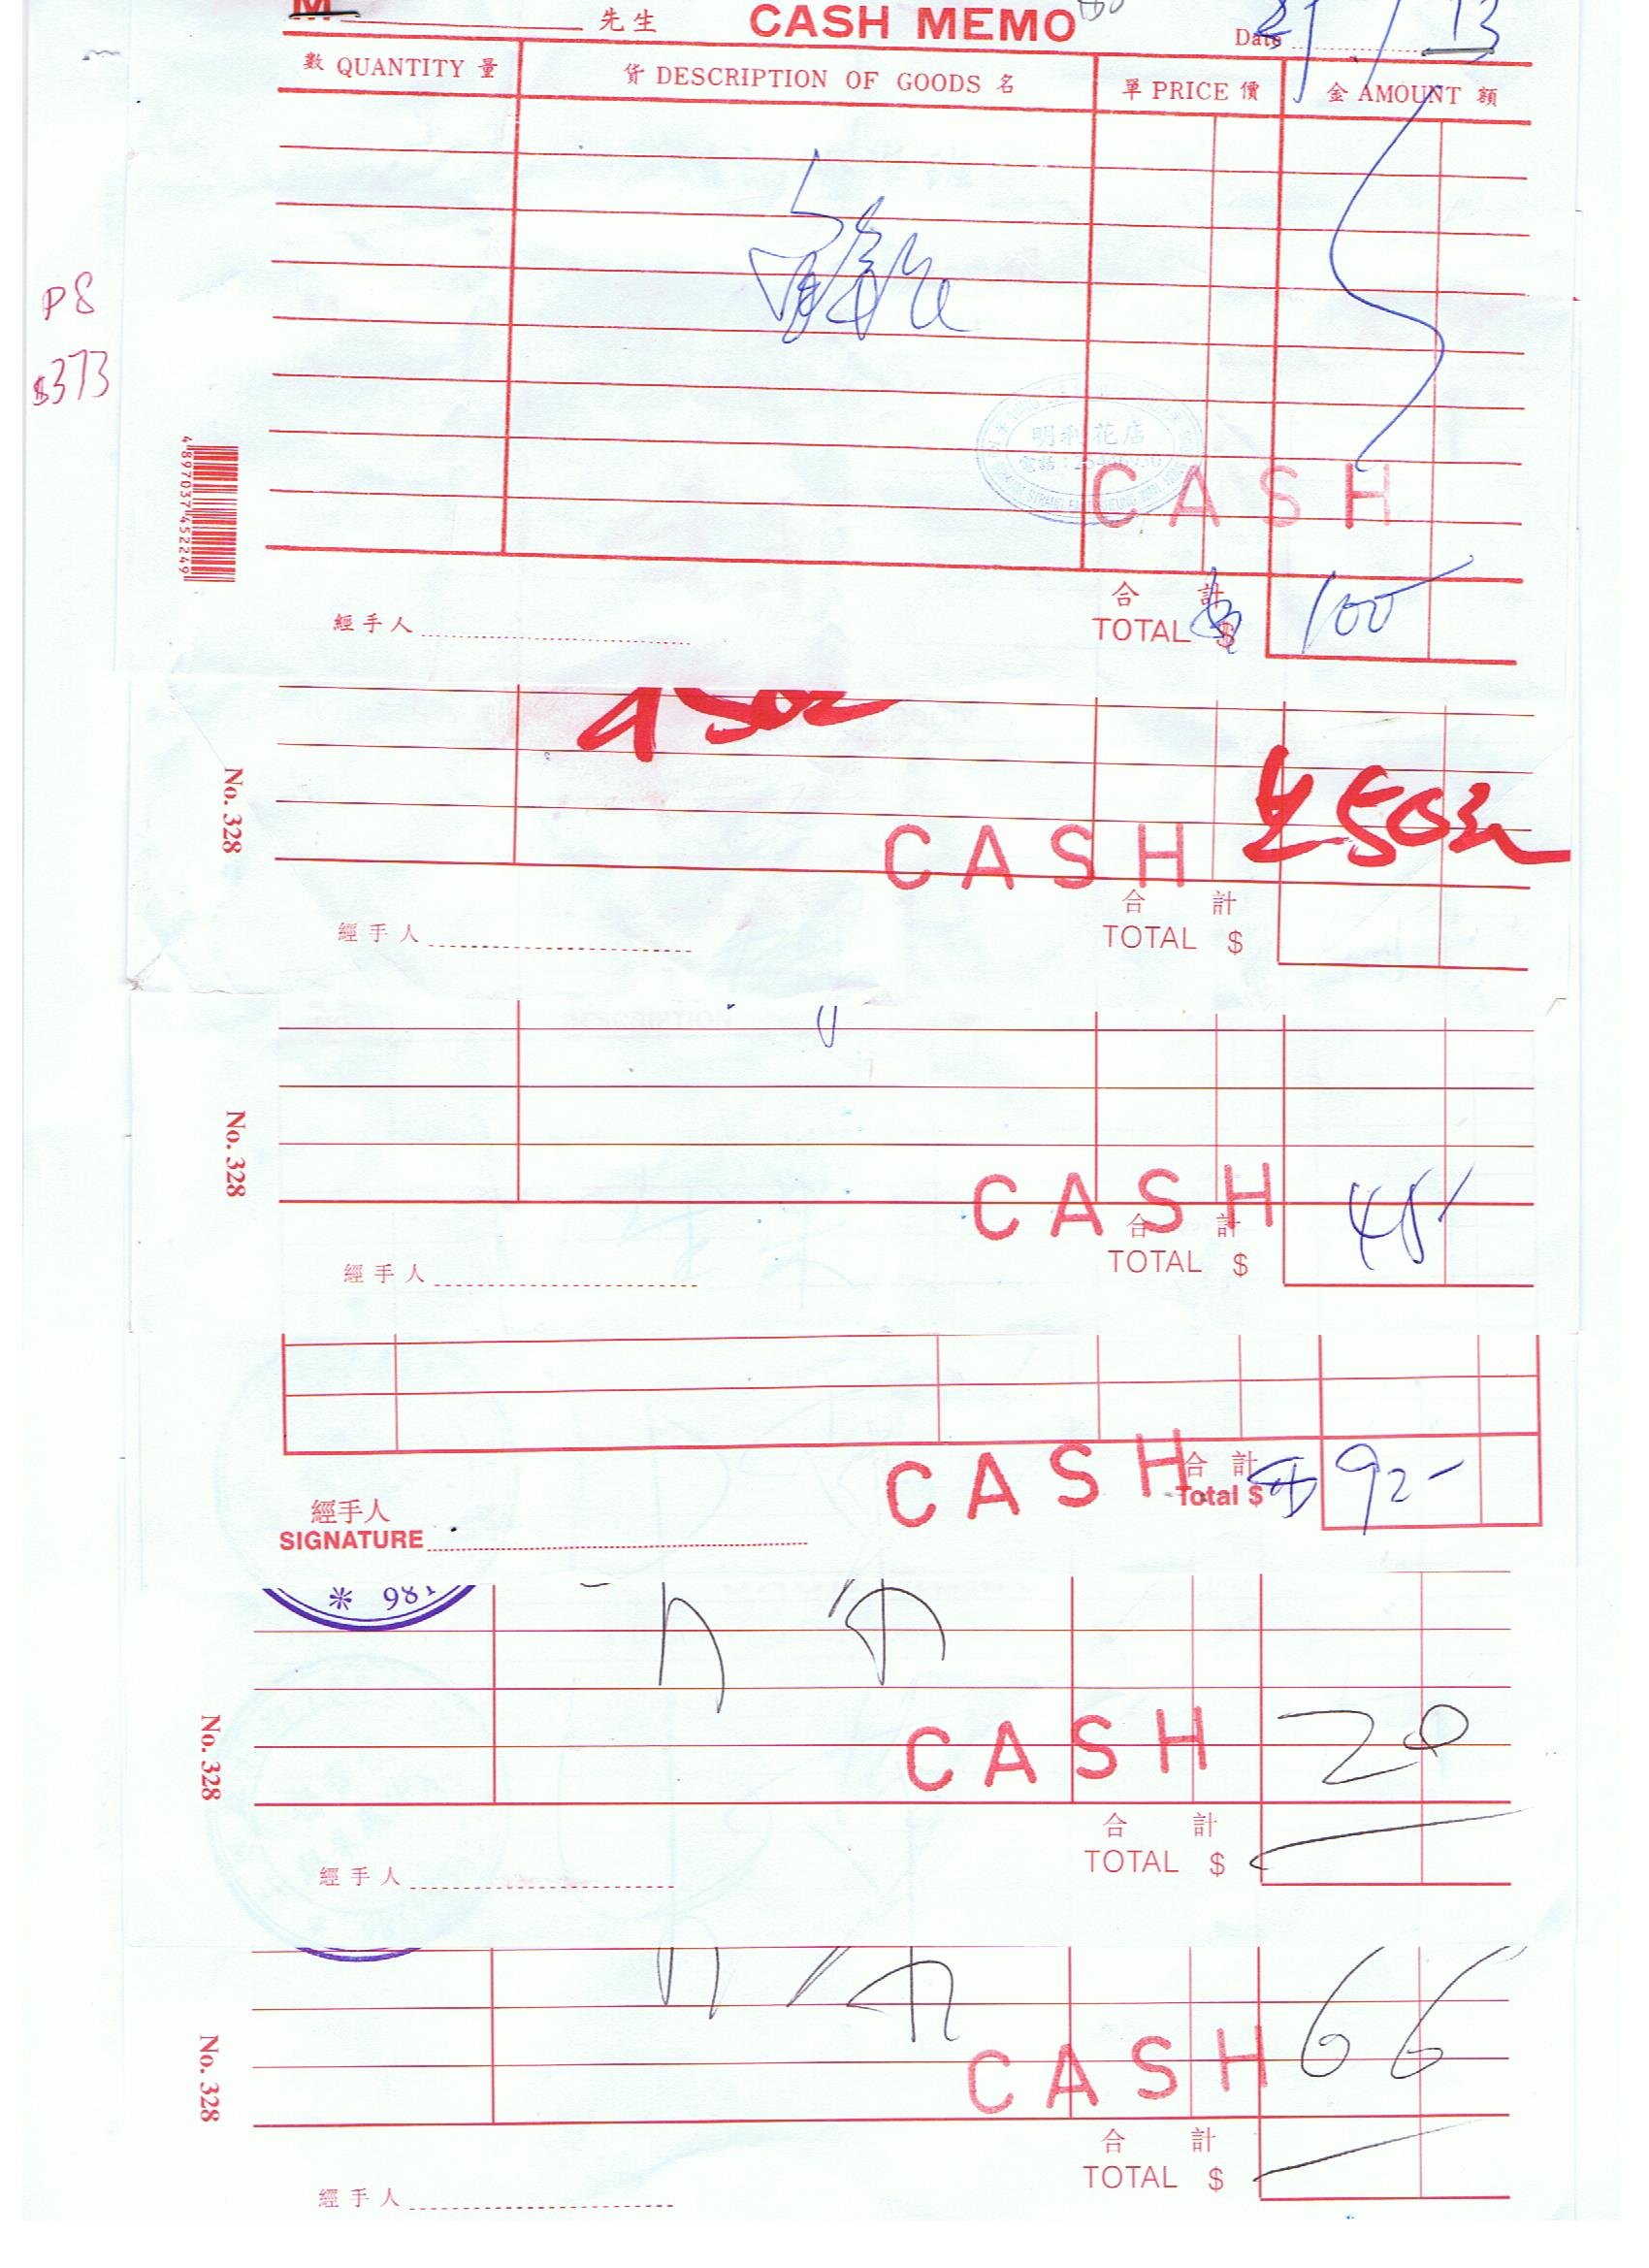 先生 CASH MEMO Date
數 QUANTITY 量 貨 DESCRIPTION OF GOODS 名 單 PRICE 價 金 AMOUNT 額
P8
$373
明利花店
CASH
4897037452249
合 計
經手人 TOTAL $ 100
No. 328
CASH
合 計
經手人 TOTAL $
No. 328
CASH
合 計
經手人 TOTAL $ 45
CASH
合 計
經手人 Total $ 92-
SIGNATURE
No. 328
CASH 20
合 計
經手人 TOTAL $
No. 328
CASH 66
合 計
經手人 TOTAL $